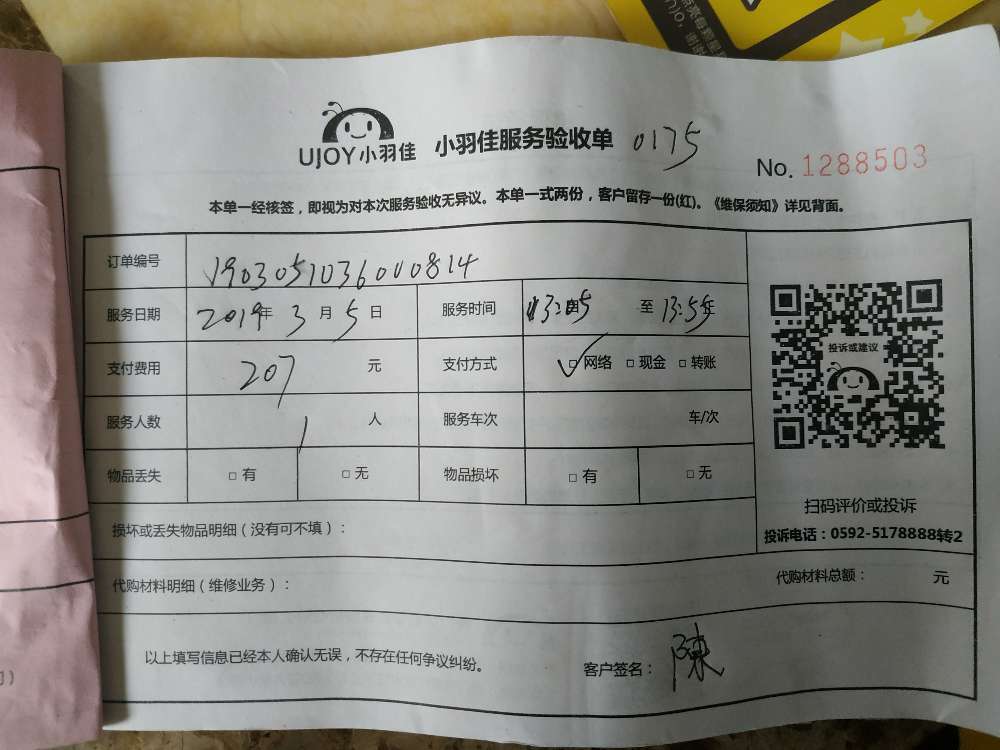 UJOY小羽佳 小羽佳服务验收单 0175
No. 1288503
本单一经核签，即视为对本次服务验收无异议。本单一式两份，客户留存一份(红)。《维保须知》详见背面。
订单编号 J903051036000814
服务日期 2019年 3 月 5 日 服务时间 13:05 至 13:55
支付费用 207 元 支付方式 ✓□ 网络 □ 现金 □ 转账
服务人数 1 人 服务车次 车/次
物品丢失 □ 有 □ 无 物品损坏 □ 有 □ 无
投诉或建议
扫码评价或投诉
投诉电话：0592-5178888转2
损坏或丢失物品明细（没有可不填）：
代购材料明细（维修业务）： 代购材料总额： 元
以上填写信息已经本人确认无误，不存在任何争议纠纷。 客户签名： 陈